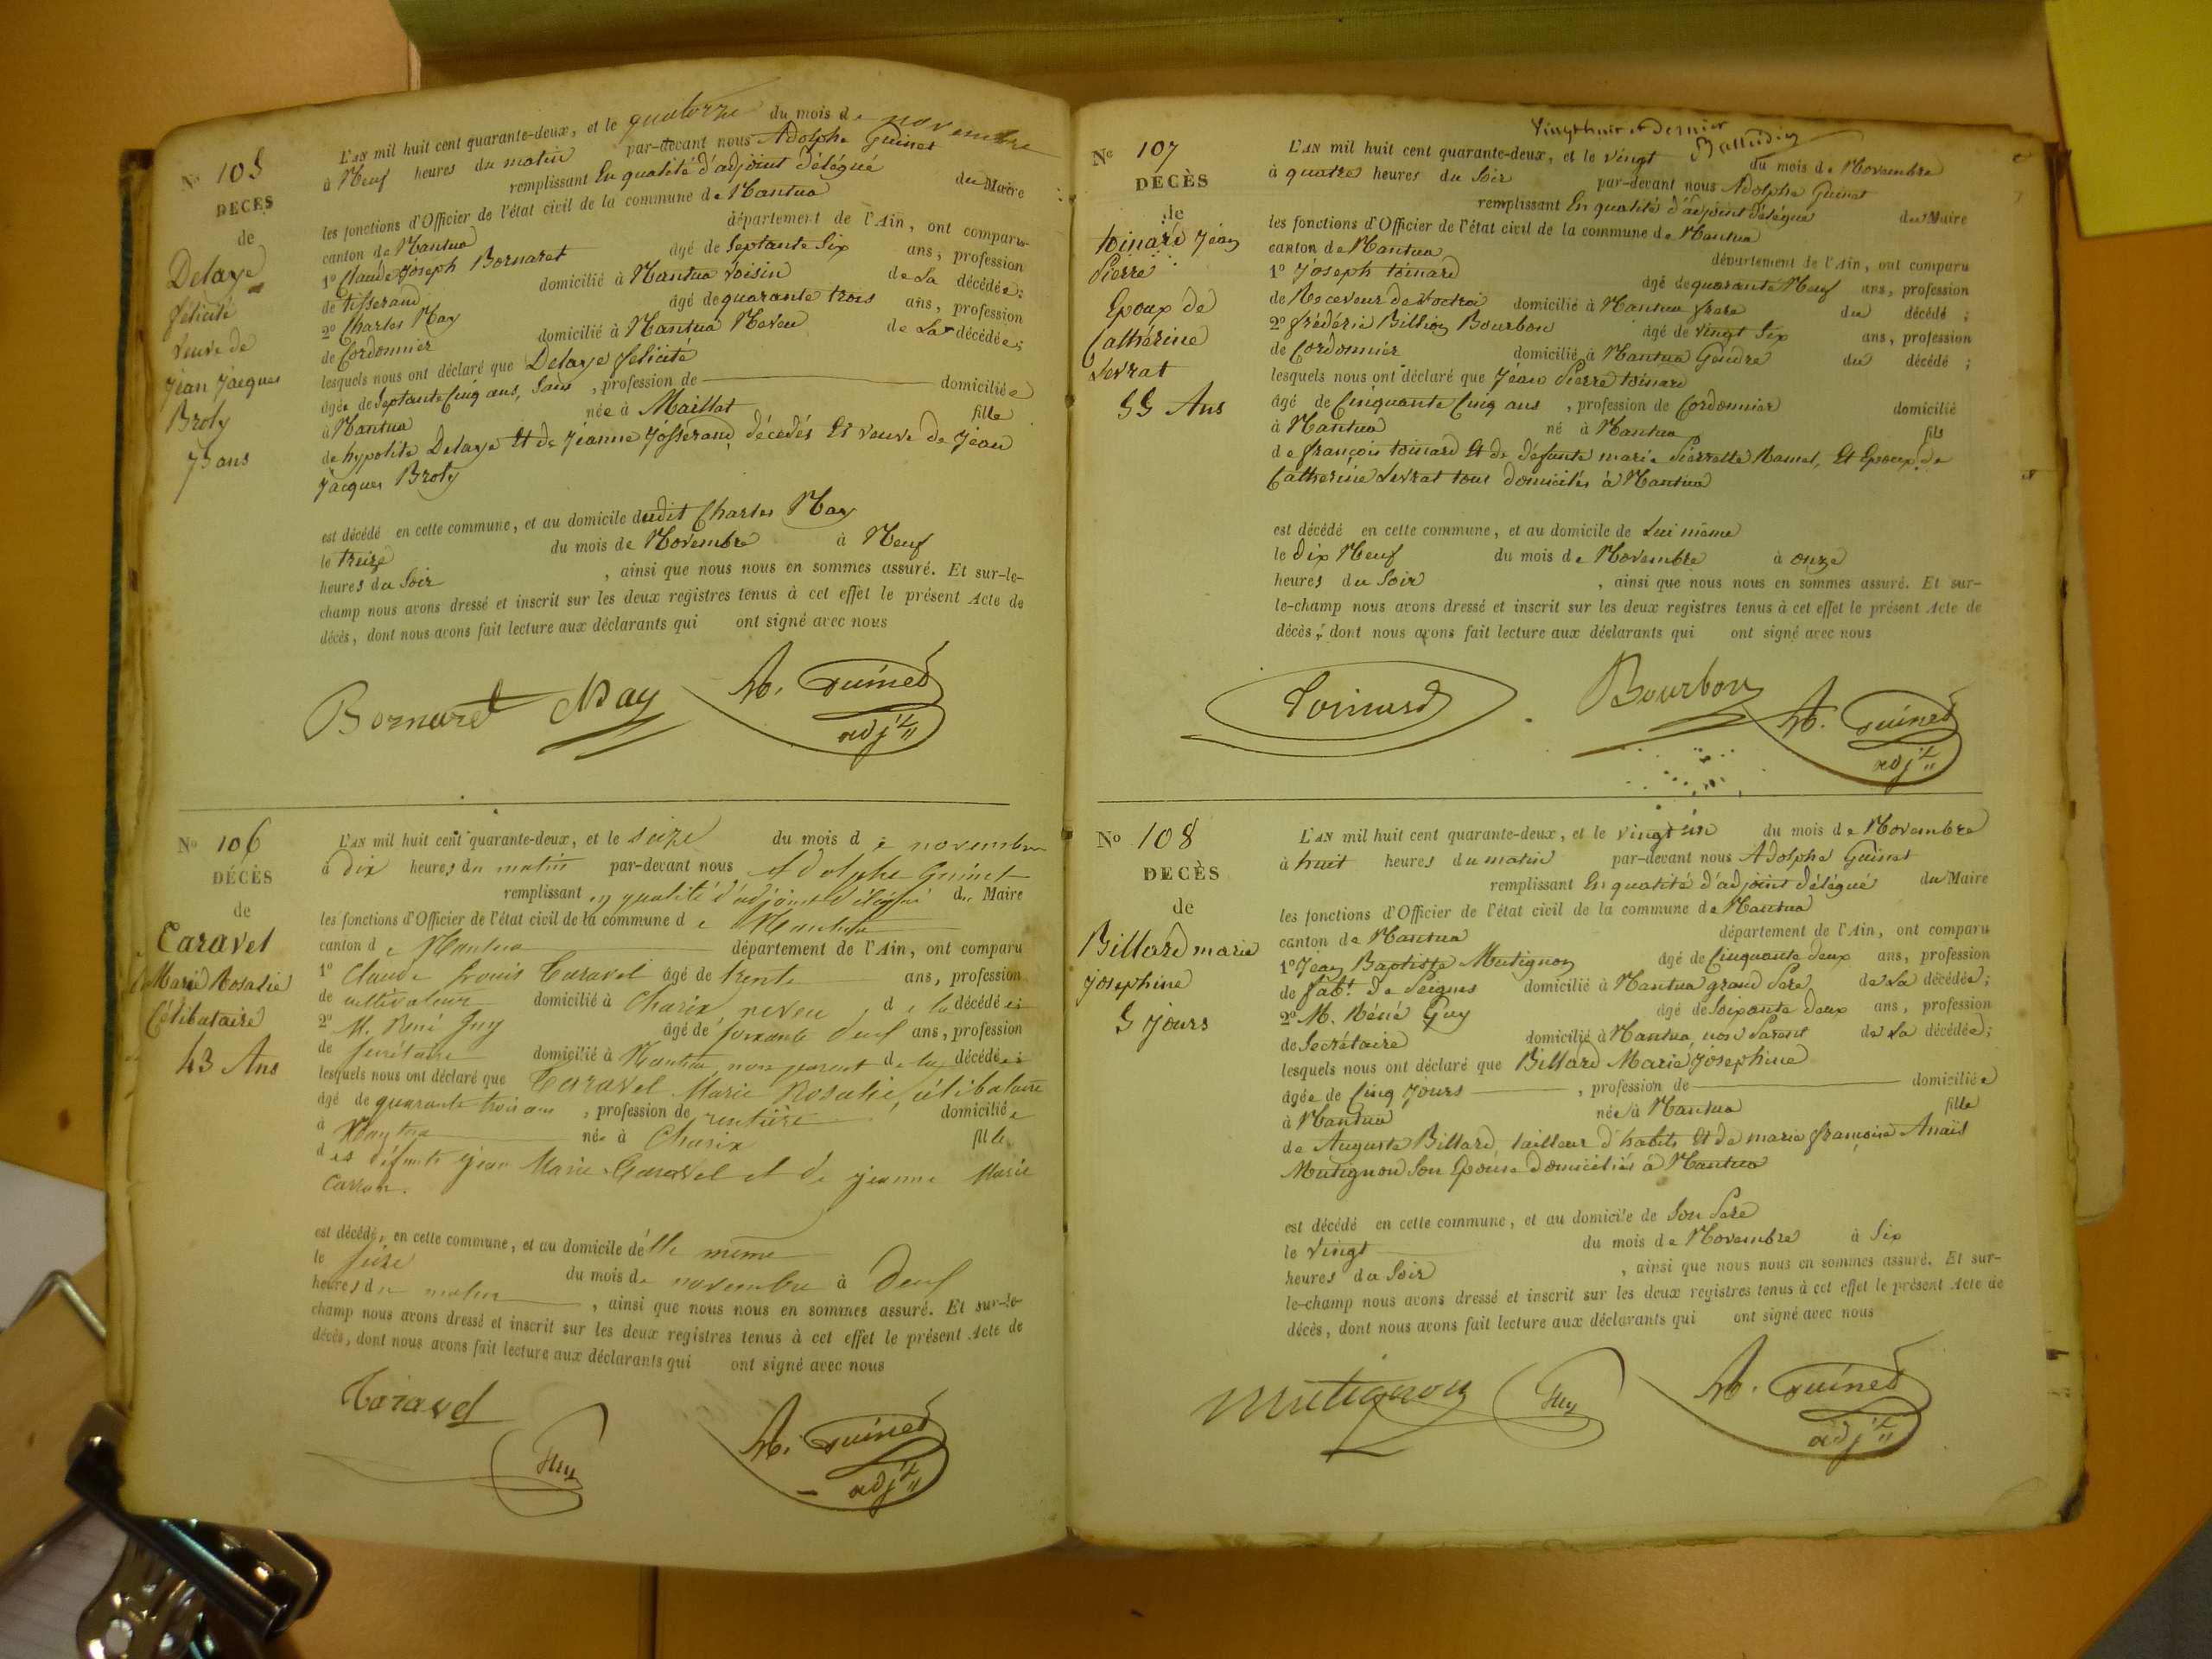 No 105
DECES
de
Delaye
félicité
veuve de
Jean Jacques
Broty
75 ans
L'AN mil huit cent quarante-deux, et le quatorze du mois de novembre
à Neuf heures du matin par-devant nous Adolphe Guinet
remplissant En qualité d'adjoint délégué du Maire
les fonctions d'Officier de l'état civil de la commune de Nantua
canton de Nantua département de l'Ain, ont comparu
1o Claude Joseph Bornaret agé de Septante Six ans, profession
de tisserand domicilié à Nantua voisin de la décédée;
2o Charles May âgé de quarante trois ans, profession
de Cordonnier domicilié à Nantua Neveu de la décédée;
lesquels nous ont déclaré que Delaye félicité
âgée de Septante Cinq ans, Sans , profession de domiciliée
à Nantua née à Maillat fille
de hypolite Delaye Et de Jeanne Josserand décédés Et veuve de Jean
Jacques Broty
est décédé en cette commune, et au domicile dudit Charles May
le treize du mois de Novembre à Neuf
heures du Soir , ainsi que nous nous en sommes assuré. Et sur-le-
champ nous avons dressé et inscrit sur les deux registres tenus à cet effet le présent Acte de
décès, dont nous avons fait lecture aux déclarants qui ont signé avec nous
Bornaret May Ad. Guinet
adjt
No 106
DÉCÈS
de
Caravel
Marie Rosalie
Célibataire
43 Ans
L'AN mil huit cent quarante-deux, et le seize du mois de novembre
à dix heures du matin par-devant nous Adolphe Guinet
remplissant en qualité d'adjoint délégué du Maire
les fonctions d'Officier de l'état civil de la commune de Nantua
canton de Nantua département de l'Ain, ont comparu
1o Claude Louis Caravel âgé de trente ans, profession
de cultivateur domicilié à Charix neveu de la décédée
2o M. René Guy âgé de soixante deux ans, profession
de secrétaire domicilié à Nantua, non parent de la décédée
lesquels nous ont déclaré que Caravel Marie Rosalie, célibataire
âgé de quarante trois ans , profession de rentière domiciliée
à Nantua née à Charix fille
des défunts Jean Marie Caravel et de Jeanne Marie
est décédée en cette commune, et au domicile d'elle même
le seize du mois de novembre à deux
heures du matin , ainsi que nous nous en sommes assuré. Et sur-le-
champ nous avons dressé et inscrit sur les deux registres tenus à cet effet le présent Acte de
décès, dont nous avons fait lecture aux déclarants qui ont signé avec nous
Caravel
Guy Ad. Guinet
adjt
Vingthuit et dernier
No 107
DECÈS
de
toinard Jean
Pierre
Epoux de
Catherine
Levrat
55 Ans
L'AN mil huit cent quarante-deux, et le vingt du mois de Novembre
à quatre heures du Soir par-devant nous Adolphe Guinet
remplissant En qualité d'adjoint délégué du Maire
les fonctions d'Officier de l'état civil de la commune de Nantua
canton de Nantua département de l'Ain, ont comparu
1o Joseph toinard âgé de quarante Neuf ans, profession
de Receveur de l'octroi domicilié à Nantua frere du décédé ;
2o frédéric Billion Bourbon âgé de vingt Six ans, profession
de Cordonnier domicilié à Nantua Gendre du décédé ;
lesquels nous ont déclaré que Jean Pierre toinard
âgé de Cinquante Cinq ans , profession de Cordonnier domicilié
à Nantua né à Nantua fils
de françois toinard Et de défunte marie Pierrette Hamel, Et Epoux de
Catherine Levrat tous domiciliés à Nantua
est décédé en cette commune, et au domicile de Lui même
le dix Neuf du mois de Novembre à onze
heures du Soir , ainsi que nous nous en sommes assuré. Et sur-
le-champ nous avons dressé et inscrit sur les deux registres tenus à cet effet le présent Acte de
décès, dont nous avons fait lecture aux déclarants qui ont signé avec nous
Toinard Bourbon Ad. Guinet
adjt
No 108
DECÈS
de
Billard marie
Josephine
5 Jours
L'AN mil huit cent quarante-deux, et le vingt un du mois de Novembre
à huit heures du matin par-devant nous Adolphe Guinet
remplissant En qualité d'adjoint délégué du Maire
les fonctions d'Officier de l'état civil de la commune de Nantua
canton de Nantua département de l'Ain, ont comparu
1o Jean Baptiste Mutignon âgé de Cinquante deux ans, profession
de fabt. de Peignes domicilié à Nantua grand Pere de la décédée;
2o M. Réné Guy âgé de Soixante deux ans, profession
de Secrétaire domicilié à Nantua, non Parent de la décédée;
lesquels nous ont déclaré que Billard Marie Josephine
âgée de Cinq Jours , profession de domiciliée
à Nantua née à Nantua fille
de Auguste Billard, tailleur d'habits Et de marie françoise Anaïs
Mutignon Son Epouse domiciliés à Nantua
est décédé en cette commune, et au domicile de Son Pere
le Vingt du mois de Novembre à Six
heures du Soir , ainsi que nous nous en sommes assuré. Et sur-
le-champ nous avons dressé et inscrit sur les deux registres tenus à cet effet le présent Acte de
décès, dont nous avons fait lecture aux déclarants qui ont signé avec nous
Mutignon Guy Ad. Guinet
adjt